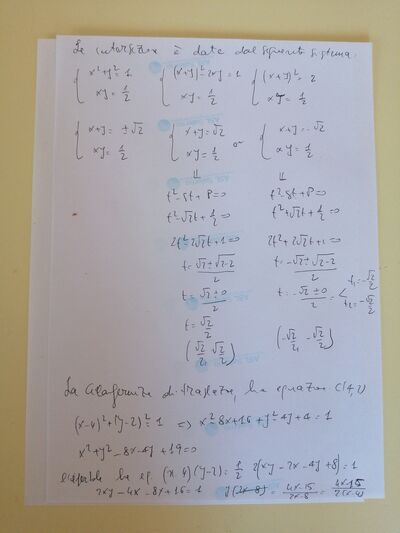 Le intersezioni è date dal seguente sistema:
{ x²+y²=1 { (x+y)²-2xy=1 { (x+y)²=2
xy=1/2 xy=1/2 xy=1/2
{ x+y=±√2 { x+y=√2 or { x+y=-√2
xy=1/2 xy=1/2 xy=1/2
⇓ ⇓
t²-st+P=0 t²-st+P=0
t²-√2t+1/2=0 t²+√2t+1/2=0
2t²-2√2t+1=0 2t²+2√2t+1=0
t=√2±√2-2/2 t=-√2±√2-2/2
t=√2±0/2 t=-√2±0/2 = < t₁=-√2/2 t₂=-√2/2
t=√2/2
(√2/2, √2/2) (-√2/2, -√2/2)
La circonferenza di traslazione, ha equazione C(4,2)
(x-4)²+(y-2)²=1 ⇒ x²-8x+16+y²-4y+4=1
x²+y²-8x-4y+19=0
L'iperbole ha eq. (x-4)(y-2)=1/2 2(xy-2x-4y+8)=1
2xy-4x-8y+16=1 y(2x-8)=4x-15/2x-8=4x-15/2(x-4)